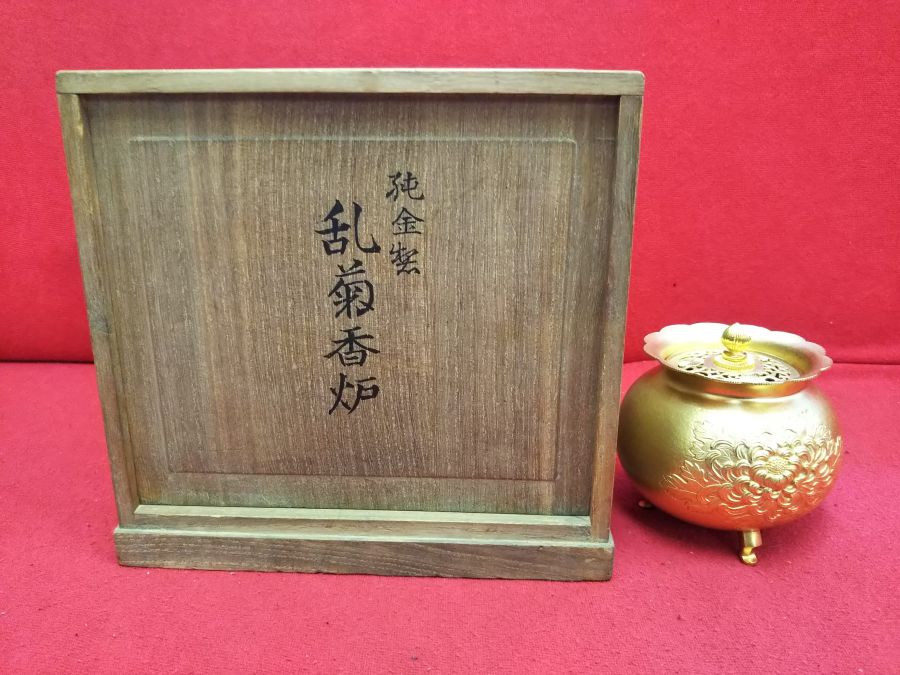 純金製
乱菊香炉